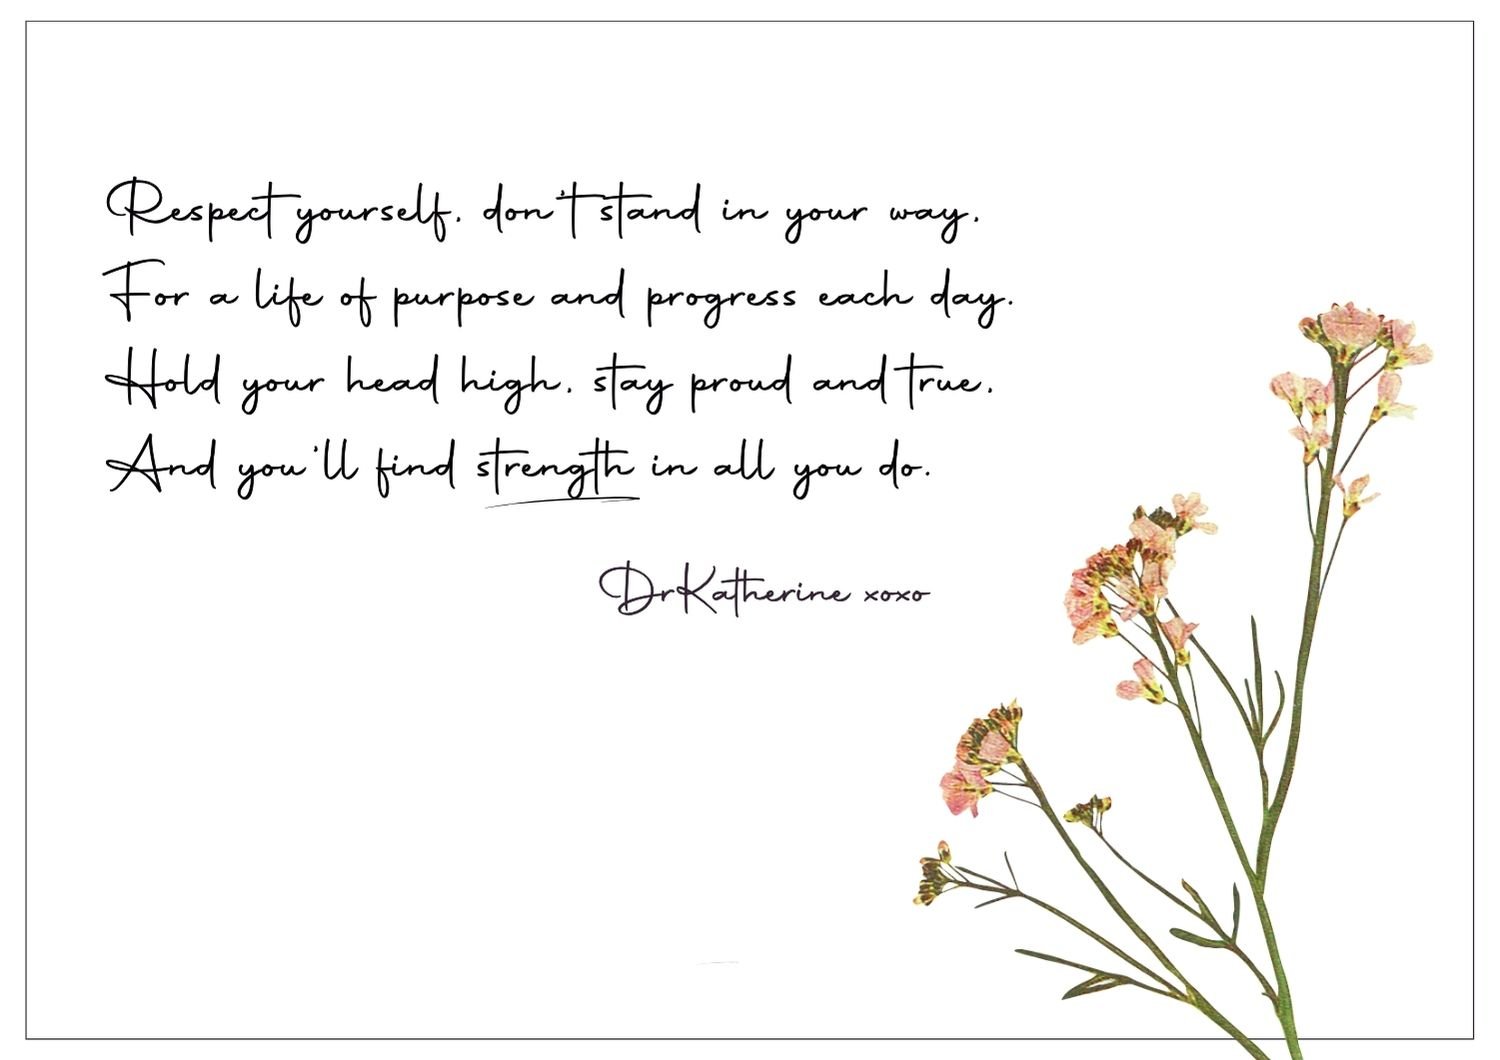 Respect yourself, don't stand in your way,
For a life of purpose and progress each day.
Hold your head high, stay proud and true,
And you'll find strength in all you do.
DrKatherine xoxo